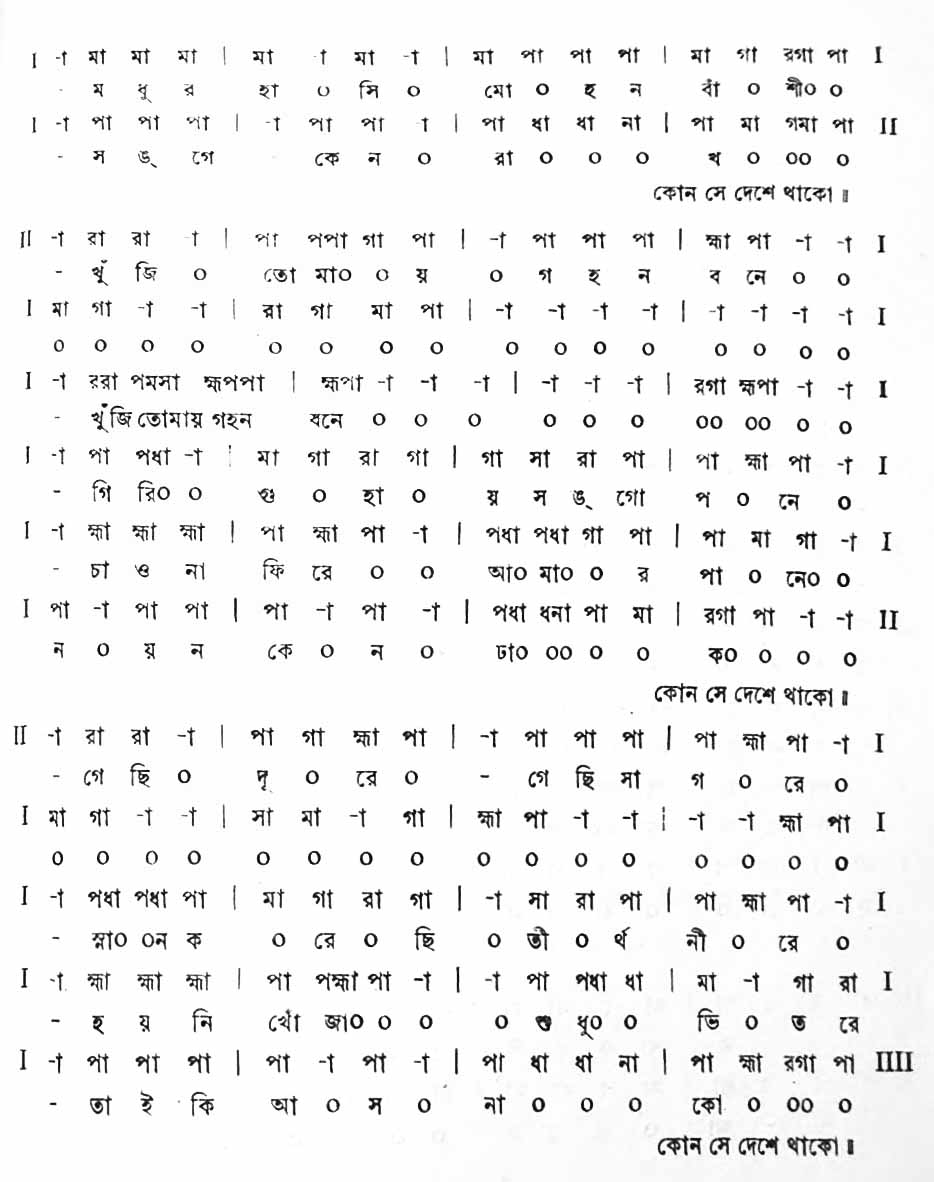 I -া মা মা মা | মা -া মা -া | মা পা পা পা | মা গা রগা পা I
- ম ধু র হা ০ সি ০ মো ০ হ ন বাঁ ০ শী০ ০
I -া পা পা পা | -া পা পা -া | পা ধা ধা না | পা মা গমা পা II
- স ঙ্ গে কে ন ০ রা ০ ০ ০ খ ০ ০০ ০
কোন সে দেশে থাকো॥
II -া রা রা -া | পা পপা গা পা | -া পা পা পা | হ্মা পা -া -া I
- খুঁ জি ০ তো মা০ ০ য় ০ গ হ ন ব নে ০ ০
I মা গা -া -া | রা গা মা পা | -া -া -া -া | -া -া -া -া I
০ ০ ০ ০ ০ ০ ০ ০ ০ ০ ০ ০ ০ ০ ০ ০
I -া ররা পমসা হ্মপপা | হ্মপা -া -া -া | -া -া -া | রগা হ্মপা -া -া I
- খুঁজি তোমায় গহন বনে ০ ০ ০ ০ ০ ০ ০০ ০০ ০ ০
I -া পা পধা -া | মা গা রা গা | গা সা রা পা | পা হ্মা পা -া I
- গি রি০ ০ গু ০ হা ০ য় স ঙ্ গো প ০ নে ০
I -া হ্মা হ্মা হ্মা | পা হ্মা পা -া | পধা পধা গা পা | পা মা গা -া I
- চা ও না ফি রে ০ ০ আ০ মা০ ০ র পা ০ নে০ ০
I পা -া পা পা | পা -া পা -া | পধা ধনা পা মা | রগা পা -া -া II
ন ০ য় ন কে ০ ন ০ ঢা০ ০০ ০ ০ ক০ ০ ০ ০
কোন সে দেশে থাকো॥
II -া রা রা -া | পা গা হ্মা পা | -া পা পা পা | পা হ্মা পা -া I
- গে ছি ০ দূ ০ রে ০ - গে ছি সা গ ০ রে ০
I মা গা -া -া | সা মা -া গা | হ্মা পা -া -া | -া -া হ্মা পা I
০ ০ ০ ০ ০ ০ ০ ০ ০ ০ ০ ০ ০ ০ ০ ০
I -া পধা পধা পা | মা গা রা গা | -া সা রা পা | পা হ্মা পা -া I
- স্না০ ০ন ক ০ রে ০ ছি ০ তী ০ র্থ নী ০ রে ০
I -া হ্মা হ্মা হ্মা | পা পহ্মা পা -া | -া পা পধা ধা | মা -া গা রা I
- হ য় নি খোঁ জা০ ০ ০ ০ শু ধু০ ০ ভি ০ ত রে
I -া পা পা পা | পা -া পা -া | পা ধা ধা না | পা হ্মা রগা পা IIII
- তা ই কি আ ০ স ০ না ০ ০ ০ কো ০ ০০ ০
কোন সে দেশে থাকো॥